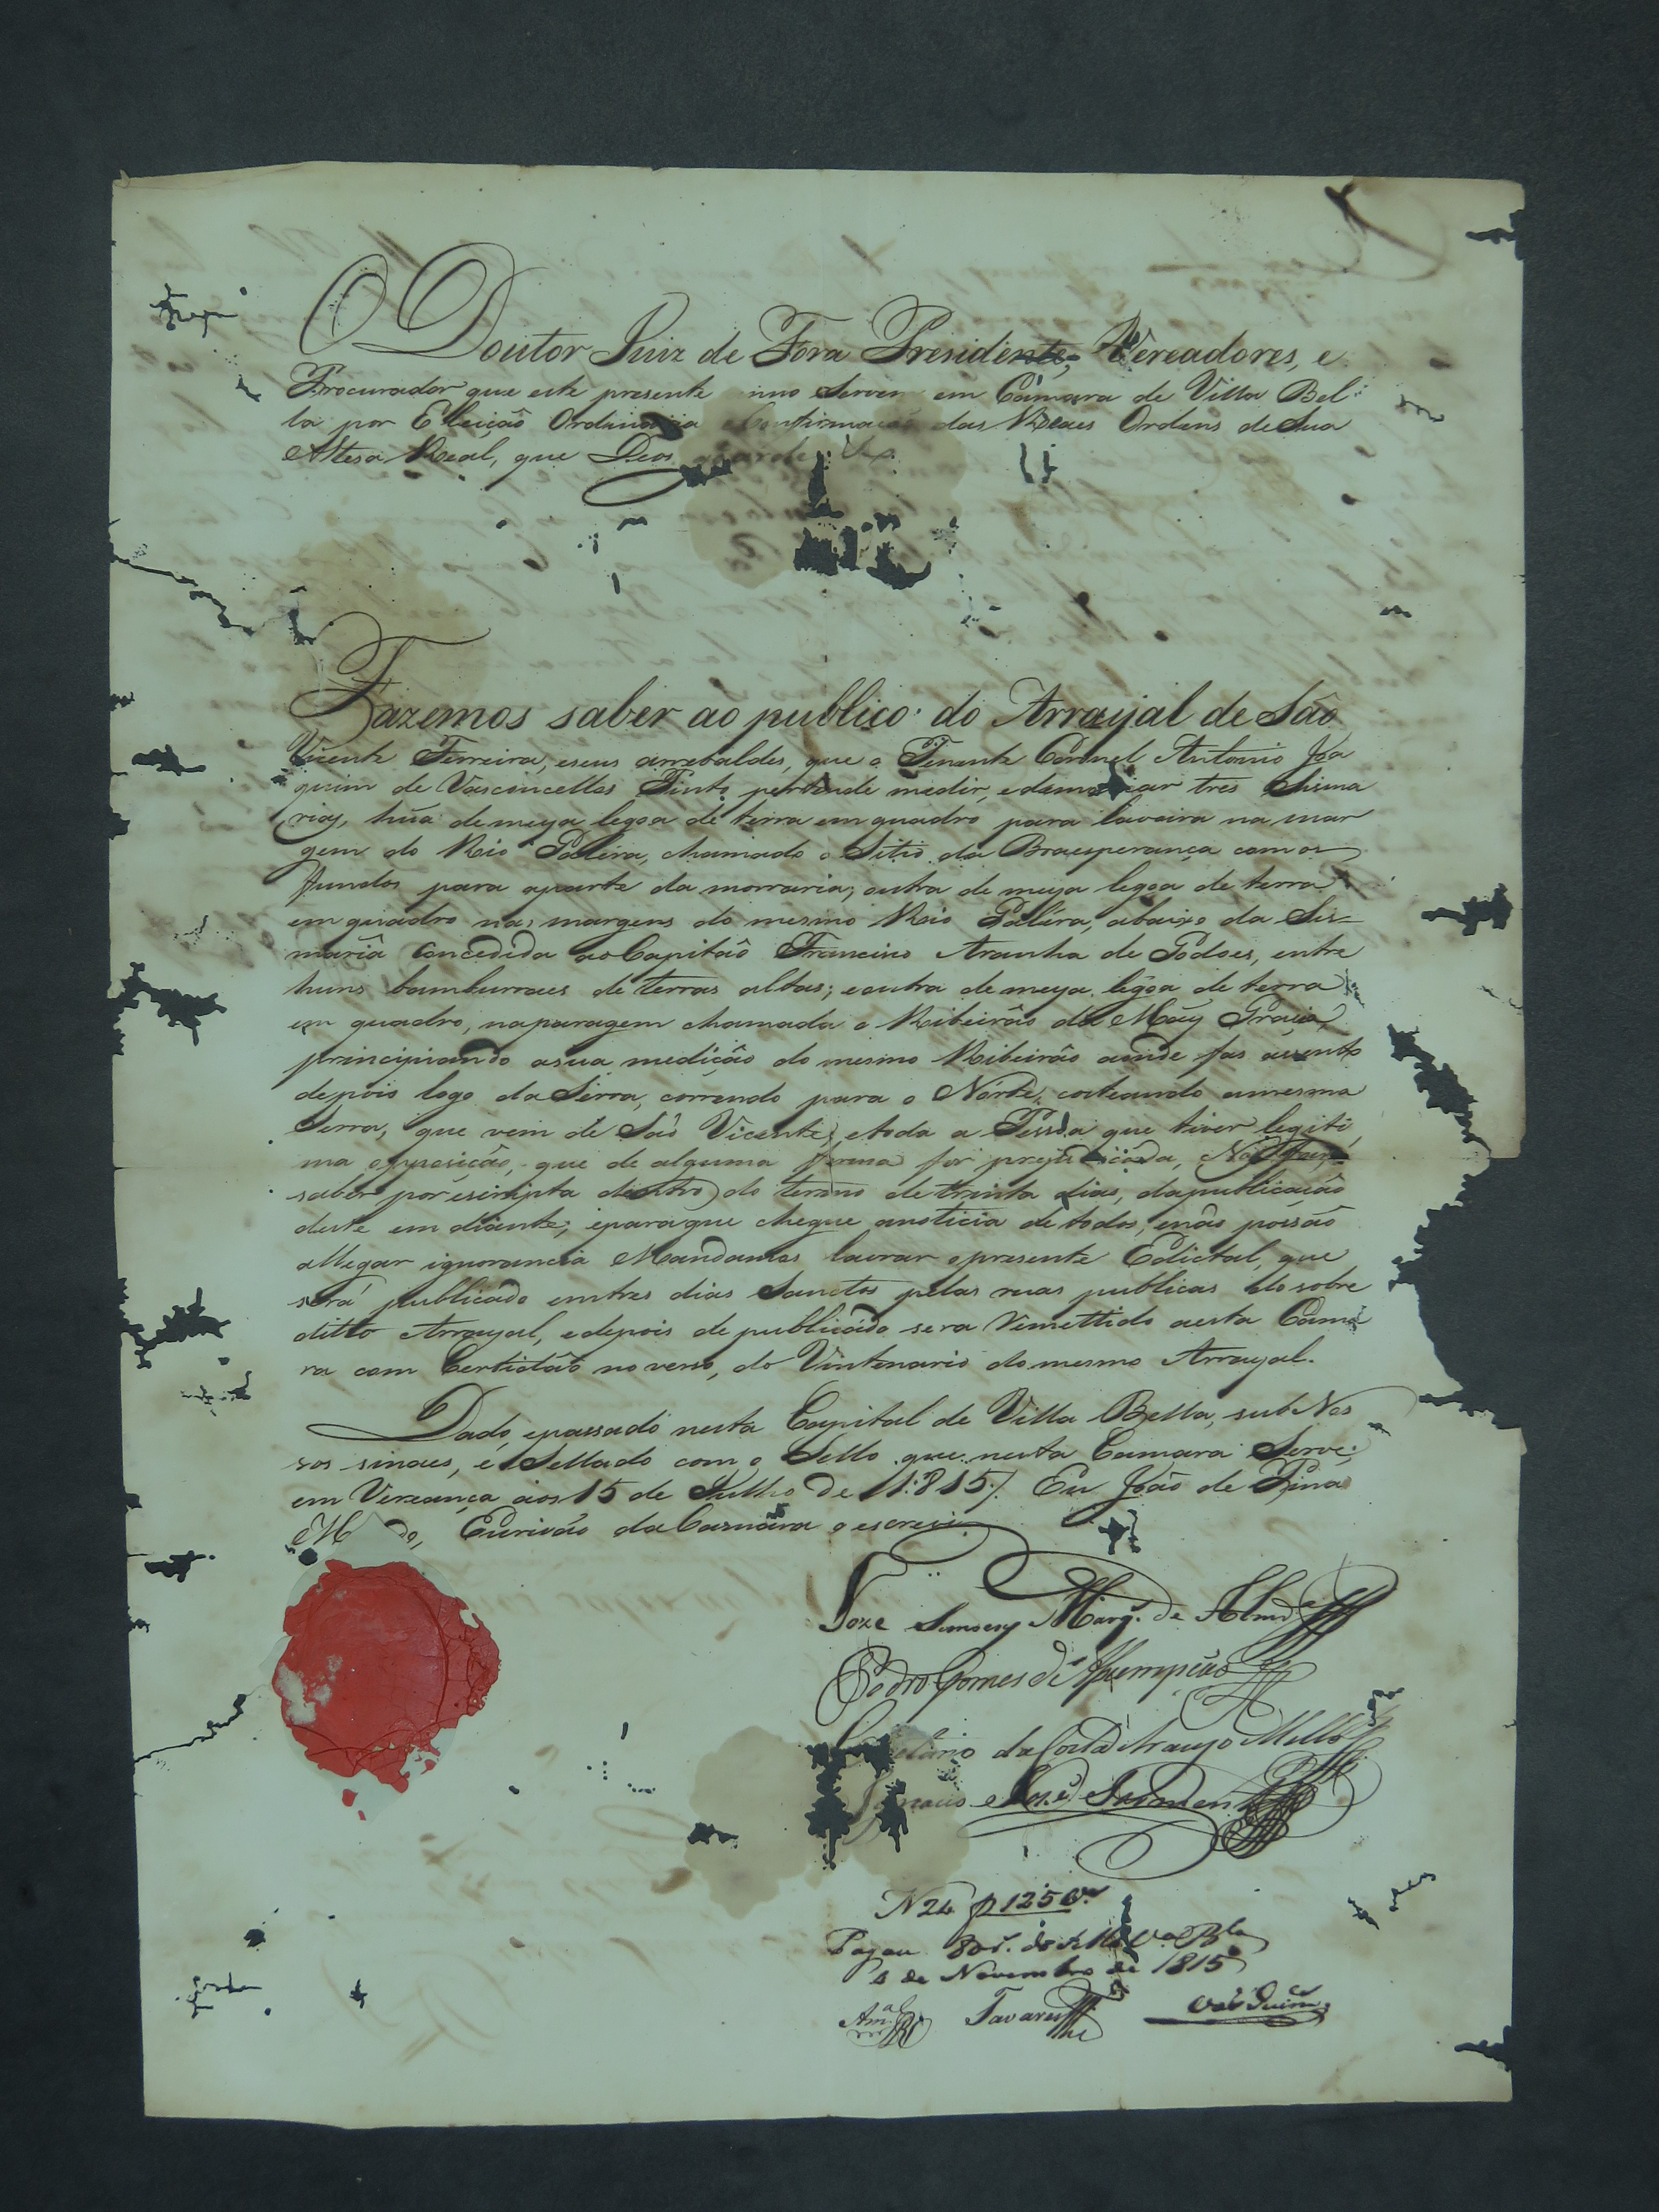 O Doutor Juiz de Fora Presidente, Vereadores, e
Procurador que este presente nno Servem em Câmara de Villa Bel:
la por Eleição Ordinaria e Confirmação das Reaes Ordens de Sua
Altesa Real, que Deos guarde V.a
Fazemos saber ao publico do Arrayal de São
Vicente Ferreira, eseus arrebaldes, que o Tenente Coronel Antonio Joa
quim de Vasconcellos Pinto pertende medir, edemarcar tres Sisma
rias, hũa demeya legoa de terra em quadro para lavoira na mar
gem do Rio Galéra, chamado o Sitio da Boaesperança com os
fundos para aparte da morraria; outra de meya legoa de terra
em quadro nas margens do mesmo Rio Galéra, abaixo da Ses-
maria Concedida ao Capitão Francisco Aranha de Godoes, entre
huns bamburraes de terras altas; eoutra demeya legoa de terra
em quadro, naparagem chamada o Ribeirão da Mãy
principiando asua medição do mesmo Ribeirão aonde fas
depois logo da Serra, correndo para o Nórte, costeando amesma
Serra, que vem de São Vicente, etoda a Pessoa que tiver legiti
ma opposição, que de alguma forma for prejudicada,
saber por escripta dentro do termo de trinta dias, dapublicação
deste em diante; eparaque chegue anoticia de todos, enão possão
allegar ignorancia Mandamos lavrar opresente Edictal, que
será publicado emtres dias Sanctos pelas ruas publicas do sobre
ditto Arrayal, edepois de publicado sera Remettido aesta Cama
ra com Certidão no verso, do Vintenario do mesmo Arrayal.
Dado, epassado nesta Capital de Villa Bella, sub Nos
sos sinaes, e Sellado com o Sello que nesta Camara Serve;
em Vereança aos 15 de Julho de 1:815/. Eu João de Pina
M do, Escrivão da Camara o escrevi.
Joze Marq. de Almd.a
Pedro Gomes d'Assumpção
da Costa Araujo Mello
Ignacio Joze Sarmento
N 24 p 125 v.
Pagou 80 r. do sello V.a B.la
4 de Novembro de 1815
Am.al Tavares